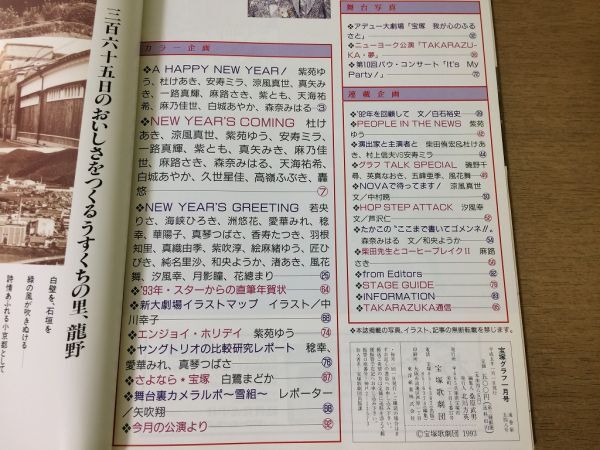 三百六十五日のおいしさをつくるうすくちの里、龍野
白壁を、石垣を
緑の風が吹きぬける
詩情あふれる小京都として
カラー企画
❖A HAPPY NEW YEAR! 紫苑ゆ
う、杜けあき、安寿ミラ、涼風真世、真矢み
き、一路真輝、麻路さき、紫とも、天海祐
希、麻乃佳世、白城あやか、森奈みはる ③
❖NEW YEAR'S COMING 杜け
あき、涼風真世、紫苑ゆう、安寿ミラ、
一路真輝、紫とも、真矢みき、麻乃佳
世、麻路さき、森奈みはる、天海祐希、
白城あやか、久世星佳、高嶺ふぶき、轟
悠 ⑦
❖NEW YEAR'S GREETING 若央
りさ、海峡ひろき、洲悠花、愛華みれ、稔
幸、華陽子、真琴つばさ、香寿たつき、羽根
知里、真織由季、紫吹淳、絵麻緒ゆう、匠ひ
びき、純名里沙、和央ようか、渚あき、風花
舞、汐風幸、月影瞳、花總まり ㉕
❖'93年・スターからの直筆年賀状 64
❖新大劇場イラストマップ イラスト/中
川幸子 66
❖エンジョイ・ホリデイ 紫苑ゆう 74
❖ヤングトリオの比較研究レポート 稔幸、
愛華みれ、真琴つばさ 76
❖さよなら・宝塚 白鷺まどか 87
❖舞台裏カメラルポ〜雪組〜 レポーター
/矢吹翔 88
❖今月の公演より 92
舞台写真
❖アデュー大劇場「宝塚 我が心のふる
さと」
❖ニューヨーク公演「TAKARAZU-
KA・夢」
❖第10回バウ・コンサート「It's My
Party!」 72
連載企画
❖'92年を回顧して 文/白石裕史 39
❖PEOPLE IN THE NEWS 紫苑
ゆう 42
❖演出家と主演者と 柴田侑宏&杜けあ
き、村上信夫VS安寿ミラ 44
❖グラフ TALK SPECIAL 磯野千
尋、英真なおき、五峰亜季、風花舞 46
❖NOVAで待ってます! 涼風真世
文/中村暁 50
❖HOP STEP ATTACK 汐風幸
文/芦沢仁 52
❖たかこの"ここまで書いてゴメンネ!!。
森奈みはる 文/和央ようか 54
❖柴田先生とコーヒーブレイクII 麻路
さき 56
❖from Editors 82
❖STAGE GUIDE 79
❖INFORMATION 83
❖TAKARAZUKA通信 85
❖本誌掲載の写真、イラスト、記事の無断転載を禁じます。
宝塚グラフ一月号
宝塚歌劇団
©宝塚歌劇団 1993